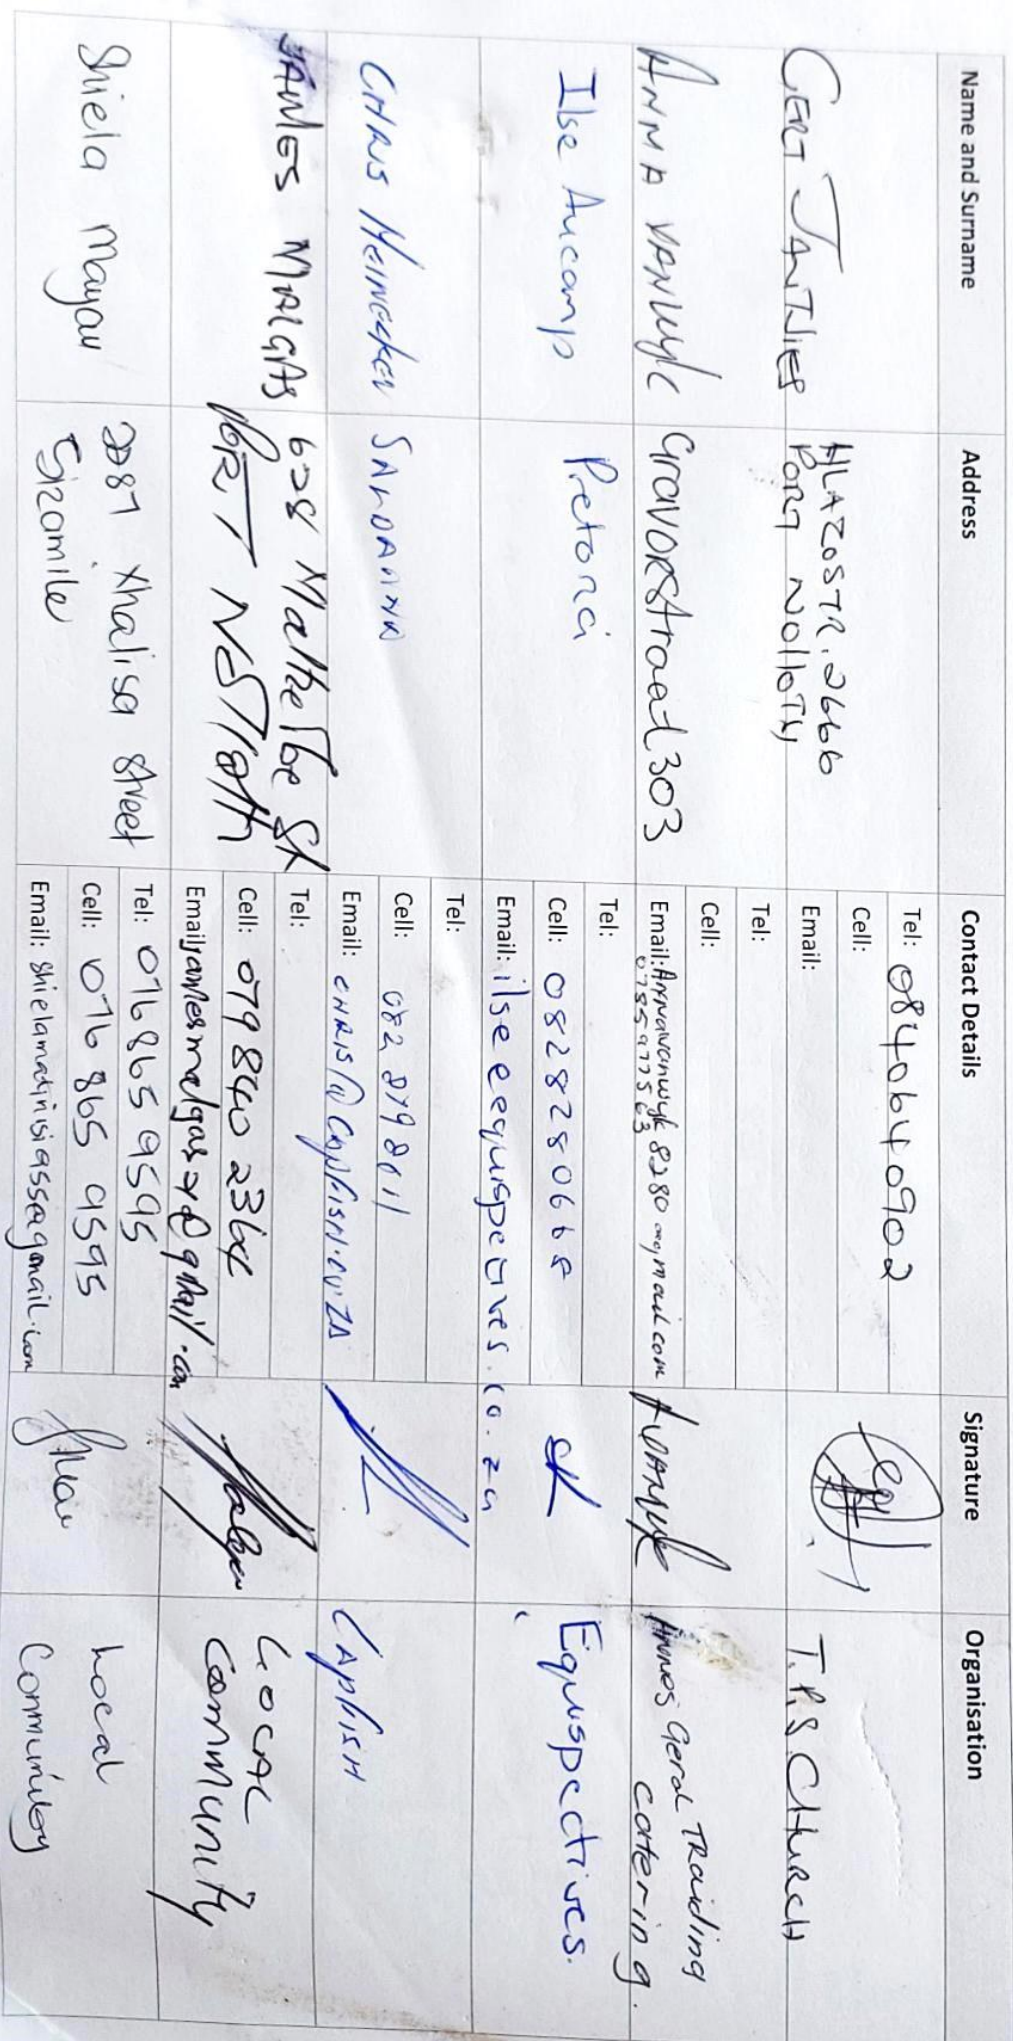 Name and Surname
Address
Contact Details
Signature
Organisation
GERT JANTJIES
HLAZO STR. 2666
PORT NOLLOTH
Tel: 0840640902
Cell:
Email:
T.P.S CHURCH
ANNA VANWYK
Gravorstraat 303
Tel:
Cell:
Email: Annavanwyk8280@gmail.com
Annas Geral TRaiding
catering.
Ilse Aucamp
Pretoria
Tel:
Cell: 0828280668
Email: ilse@equispectives.co.za
Equispectives.
CHRIS HEINECKEN
SALDANHA
Tel:
Cell: 082 899 8011
Email: CHRIS@CAPFISH.CO.ZA
CAPFISH
JAMES MALGAS
628 St
PORT NOLLOTH
Tel:
Cell: 079 840
Email:
LOCAL
COMMUNITY
Shiela Mayau
2087 Xhalisa Street
Sizamile
Tel: 076 865 9595
Cell: 076 865 9595
Email:
Local
Community